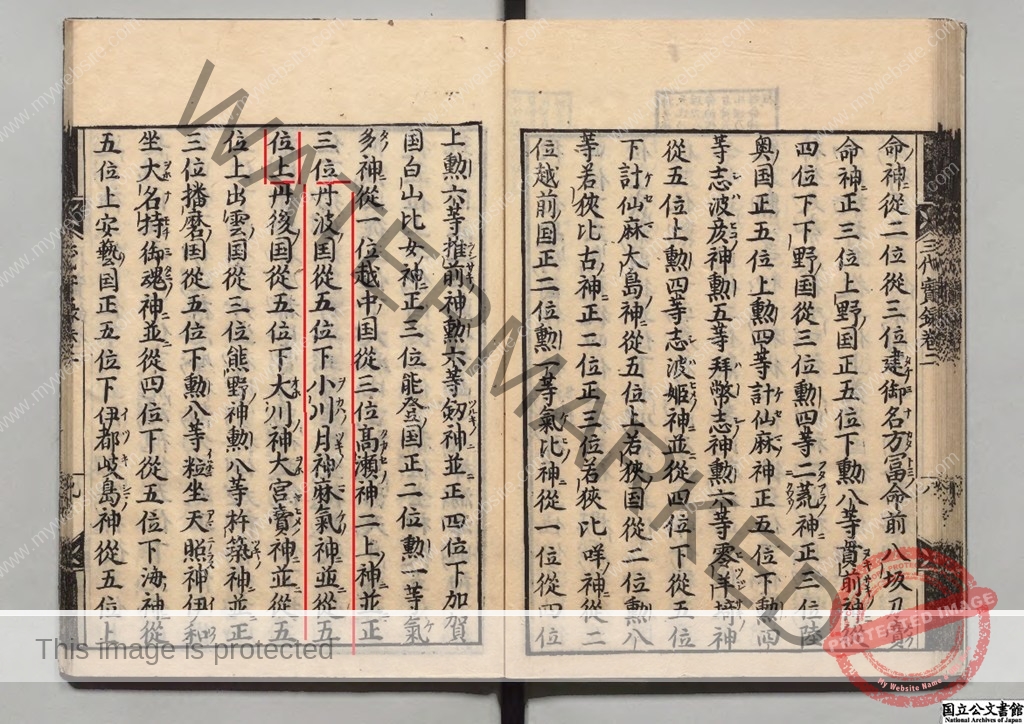 命神從二位從三位建御名方冨命前八坂刀賣
命神正三位上野国正五位下勲八等貫前神從
四位下下野国從三位勲四等二荒神正三位陸
奥国正五位上勲四等計仙麻神正五位下勲四
等志波亥神勲五等拜幣志神勲六等零羊埼神
從五位上勲四等志波姬神並從四位下從五位
下計仙麻大島神從五位上若狹国從二位勲八
等若狹比古神正二位正三位若狹比咩神從二
位越前国正二位勲一等氣比神從一位從四位
上勲六等推前神勲六等釼神並正四位下加賀
国白山比女神正三位能登国正二位勲一等氣
多神從一位越中国從三位髙瀬神二上神並正
三位丹波国從五位下小川月神麻氣神並從五
位上丹後国從五位下大川神大宮賣神並從五
位上出雲国從三位熊野神勲八等杵築神並正
三位播磨国從五位下勲八等粒坐天照神伊和
坐大名持御魂神並從四位下從五位下海神從
五位上安藝国正五位下伊都岐島神從五位上
三代實録卷二
八
九
WATERMARKED
www.mywebsite.com
This image is protected
PROTECTED IMAGE
My Website Name
国立公文書館
National Archives of Japan